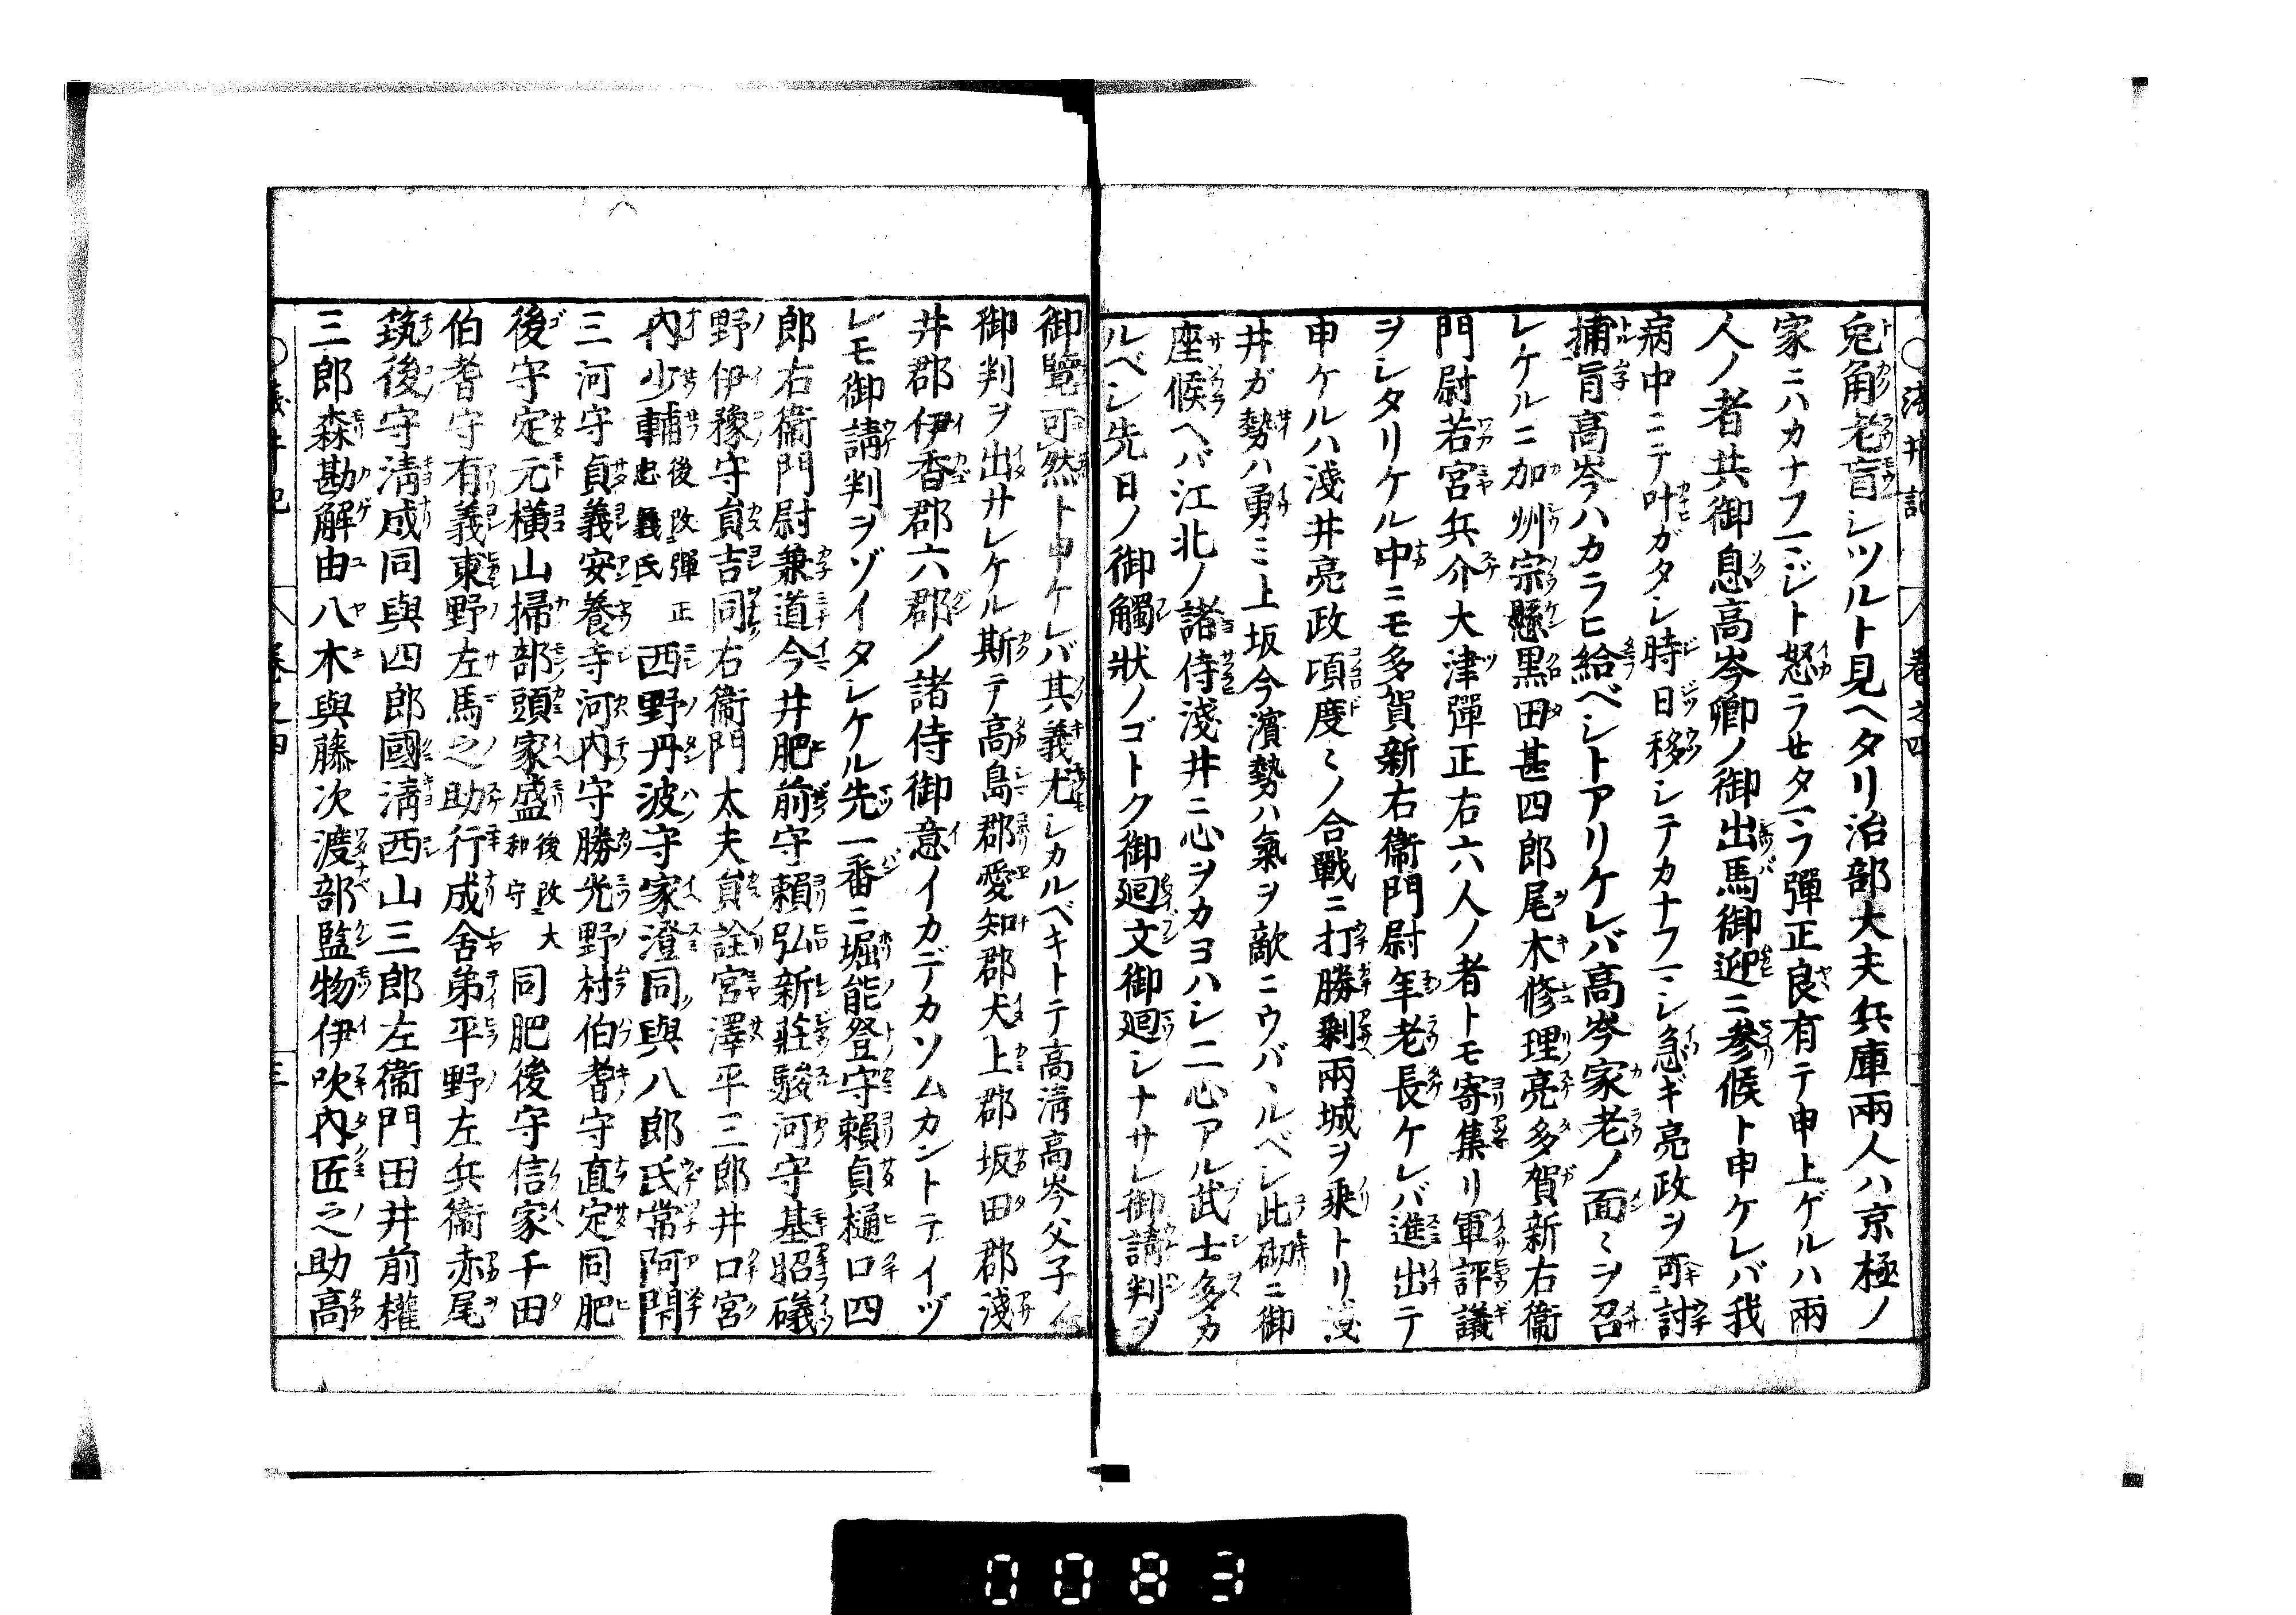 兎角老盲シツルト見ヘタリ治部大夫兵庫兩人ハ京極ノ
家ニハカナフマジト怒ラセタマフ彈正良有テ申上ゲルハ兩
人ノ者共御息高岑卿ノ御出馬御迎ニ參候ト申ケレバ我
病中ニテ叶ガタシ時日移シテカナフマシ急ギ亮政ヲ可討
捕旨高岑ハカラヒ給ベシトアリケレバ高岑家老ノ面〻ヲ召
レケルニ加州宗懸黒田甚四郎尾木修理亮多賀新右衞
門尉若宮兵介大津彈正右六人ノ者トモ寄集リ軍評議
ヲシタリケル中ニモ多賀新右衞門尉年老長ケレバ進出テ
申ケルハ淺井亮政頃度〻ノ合戰ニ打勝剰兩城ヲ乗トリ淺
井ガ勢ハ勇ミ上坂今濱勢ハ氣ヲ敵ニウバヽルベシ此砌ニ御
座候ヘバ江北ノ諸侍淺井ニ心ヲカヨハシ二心アル武士多カ
ルベシ先日ノ御觸狀ノゴトク御廻文御廻シナサレ御請判ヲ
御覽可然ト申ケレバ其義尤シカルベキトテ高淸高岑父子ノ
御判ヲ出サレケル斯テ高島郡愛知郡犬上郡坂田郡淺
井郡伊香郡六郡ノ諸侍御意イカデカソムカントテイヅ
レモ御請判ヲゾイタシケル先一番ニ堀能登守賴貞樋口四
郎右衞門尉兼道今井肥前守賴弘新莊駿河守基昭礒
野伊豫守員吉同右衞門太夫員詮宮澤平三郎井口宮
内少輔忠義後改彈正氏西野丹波守家澄同與八郎氏常阿閉
三河守貞義安養寺河内守勝光野村伯耆守直定同肥
後守定元横山掃部頭家盛後改大和守同肥後守信家千田
伯耆守有義東野左馬之助行成舍弟平野左兵衞赤尾
筑後守淸成同與四郎國淸西山三郎左衞門田井前權
三郎森勘解由八木與藤次渡部監物伊吹内匠之助高
0083